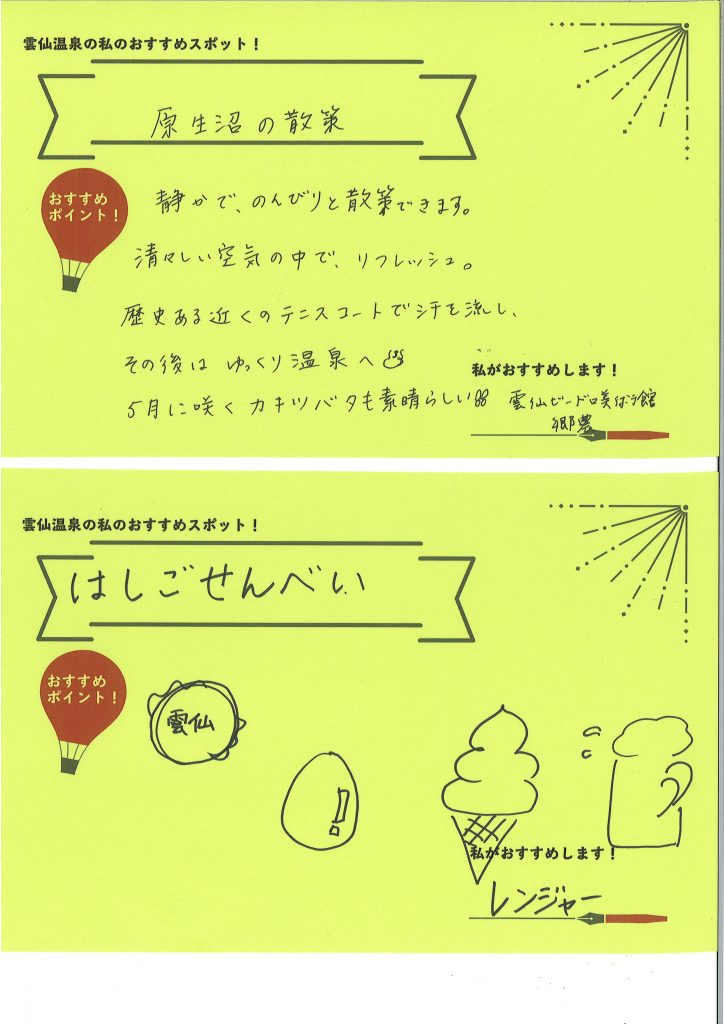 雲仙温泉の私のおすすめスポット！
原生沼の散策
おすすめ
ポイント！
静かで、のんびりと散策できます。
清々しい空気の中で、リフレッシュ。
歴史ある近くのテニスコートで汗を流し、
その後は ゆっくり温泉へ
5月に咲く カキツバタも素晴らしい
私がおすすめします！
雲仙ビードロ美術館
郷農
雲仙温泉の私のおすすめスポット！
はしごせんべい
おすすめ
ポイント！
雲仙
!
私がおすすめします！
レンジャー